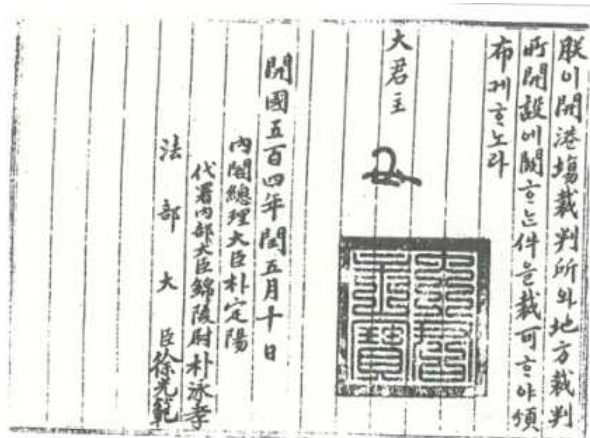 朕이開港塲裁判所와地方裁判
所開設에關ᄒᆞᄂᆞᆫ件을裁可ᄒᆞ야頒
布케ᄒᆞ노라
大君主
大君主寶
開國五百四年閏五月十日
內閣總理大臣朴定陽
代署內部大臣錦陵尉朴泳孝
法部大臣徐光範